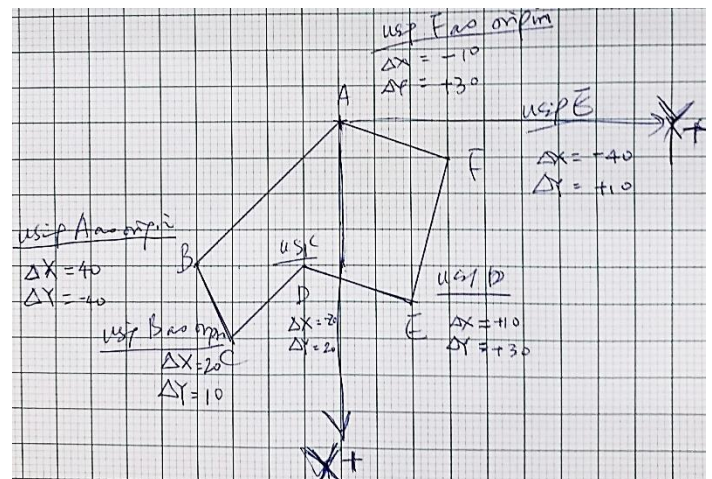 using F as origin
ΔX = -10
ΔY = +30
A
using E
X+
ΔX = -40
ΔY = +10
F
using A as origin
ΔX = 40
ΔY = -40
B
using C
D
using D
E
ΔX = +10
ΔY = +30
ΔX = -20
ΔY = 20
using B as origin
C
ΔX = 20
ΔY = 10
X+